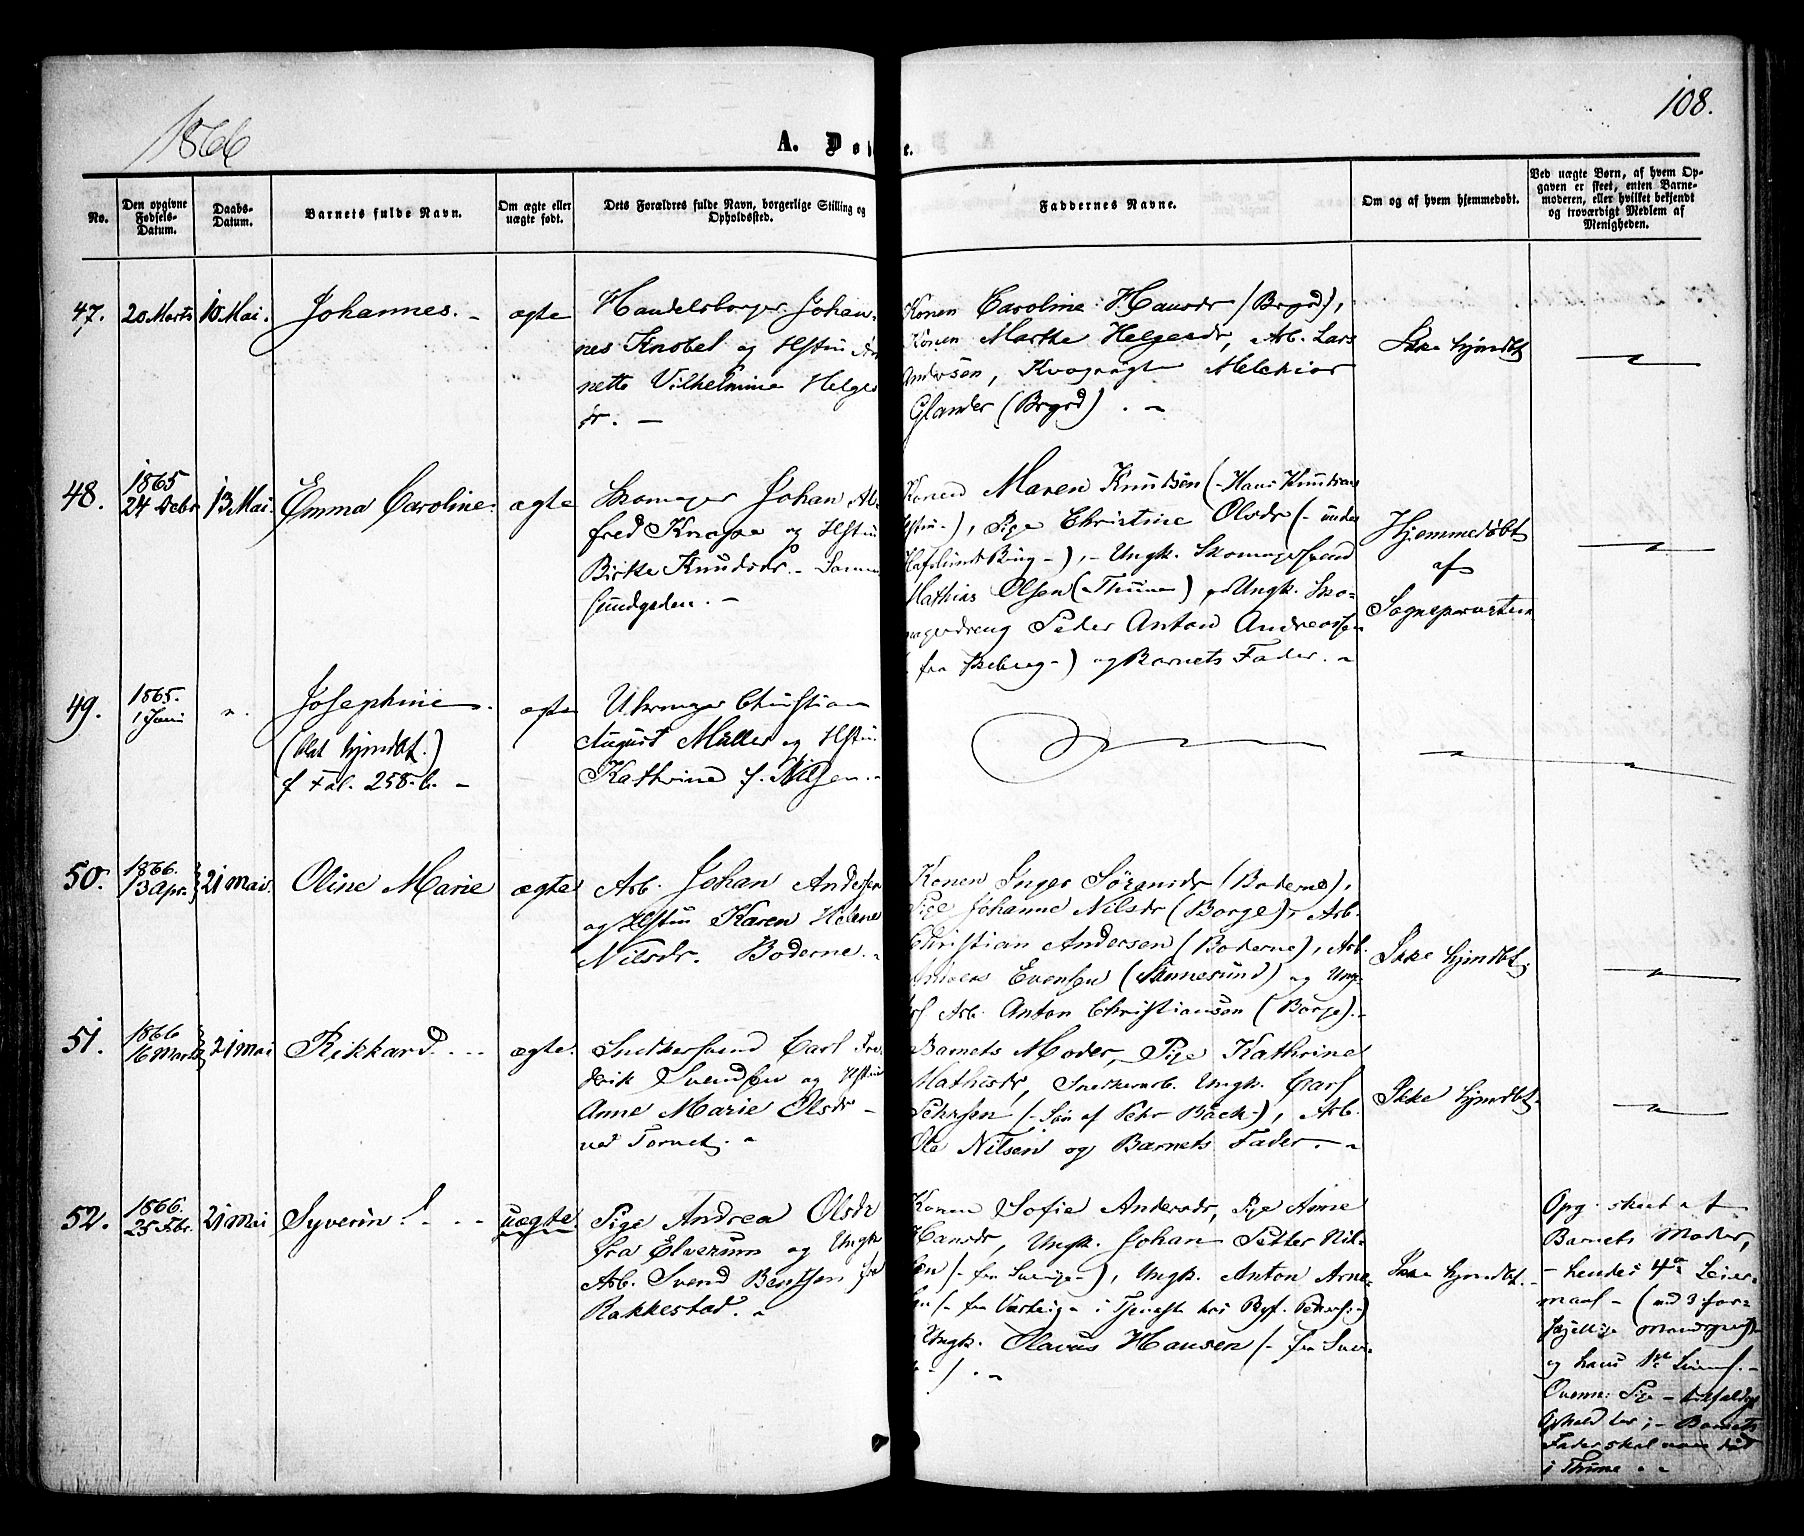 1866
108.
A. Døbte.
No.
Den opgivne Fødsels-Datum.
Daabs-Datum.
Barnets fulde Navn.
Om ægte eller uægte født.
Dets Forældres fulde Navn, borgerlige Stilling og Opholdssted.
Faddernes Navne.
Om og af hvem hjemmedøbt.
Ved uægte Børn, af hvem Opgaven er skeet, enten Barnemoderen, eller hvilket bekjendt og troværdigt Medlem af Menigheden.
47. 20 Marts 10 Mai. Johannes. - ægte
Handelsborger Johan-
nes Knobel og Hstru An
nette Vilhelmine Helges
dr. —
Konen Caroline Hansdr (Brgrd),
Konen Marthe Helgesdr, Arb. Lars
Andersen, Kvægrøgt Melchior
Glander (Brgrd). -
Ikke hjmdbt
48. 1865 24 Decbr 13 Mai. Emma Caroline. ægte
Skomager Johan Al-
fred Knappe og Hstru
Birke Knudsdr -
Sundgaden. -
Konen Maren Knudsen (- Hans Knudsens
Hstru -), Pige Christine Olsdr (- under
Hafslund Brug -), - Ungk. Skomagersvend
Mathias Olsen (Thune) og Ungk. Sko-
magerdreng Peder Anton Andreassen
(- fra -) og Barnets Fader. -
Hjemmedøbt
af
Sognepræsten
49. 1865. 1 Juni ". Josephine. ægte
(blot hjmdbt.)
cf Fol. 258. b. -
Uhrmager Christian
August Müller og Hstru
Kathrine f. Nilsen. -
50. 1866. 13 Apr. 21 mai. Oline Marie ægte
Arb. Johan Andersen
og Hstru Karen Helene
Nilsdr. Boderne. -
Konen Inger Sørensdr (Boderne),
Pige Johanne Nilsdr (Borge), Arb.
Christian Andersen (Boderne), Arb.
Evensen (Sannesund) og Ung-
k. Arb. Anton Christiansen (Borge). -
Ikke hjmdbt.
51. 1866 16 Marts 21 mai Rikkard. ægte.
Snekkersvend Carl Fre
derik Svendsen og Hstru
Anne Marie Olsdr -
ved Torvet. -
Barnets Moder, Pige Kathrine
Mathisdr, Snekkerarb. Ungk. Carl
Pehrsen (- Søn af Pehr Bäck -), Arb.
Ole Nilsen og Barnets Fader. -
Ikke hjmdbt.
52. 1866. 25 Fbr. 21 mai Syverin. uægte
Pige Andrea Olsdr
fra Elverum og Ungk
Arb. Svend Bentsen fra
Rakkestad. -
Konen Sofie Andersdr, Pige Anne
Hansdr, Ungk. Johan Petter Nil-
sen (- fra Sverige -), Ungk. Anton Arne-
sen (- fra Varteig - i Tjeneste hos Pehrs. -)
Ungk. Olavus Hansen (- fra Sver-
ige -). -
Ikke hjmdbt. -
Opg. skeet af
Barnets Moder,
- hendes 4de Leier-
maal - (med 3 for-
skjellige Mandspers.
og hans 1ste Leierm. -
Ovenn. Pige - tilfældigt
Ophold her; - Barnets
Fader skal være død
i Thune. -